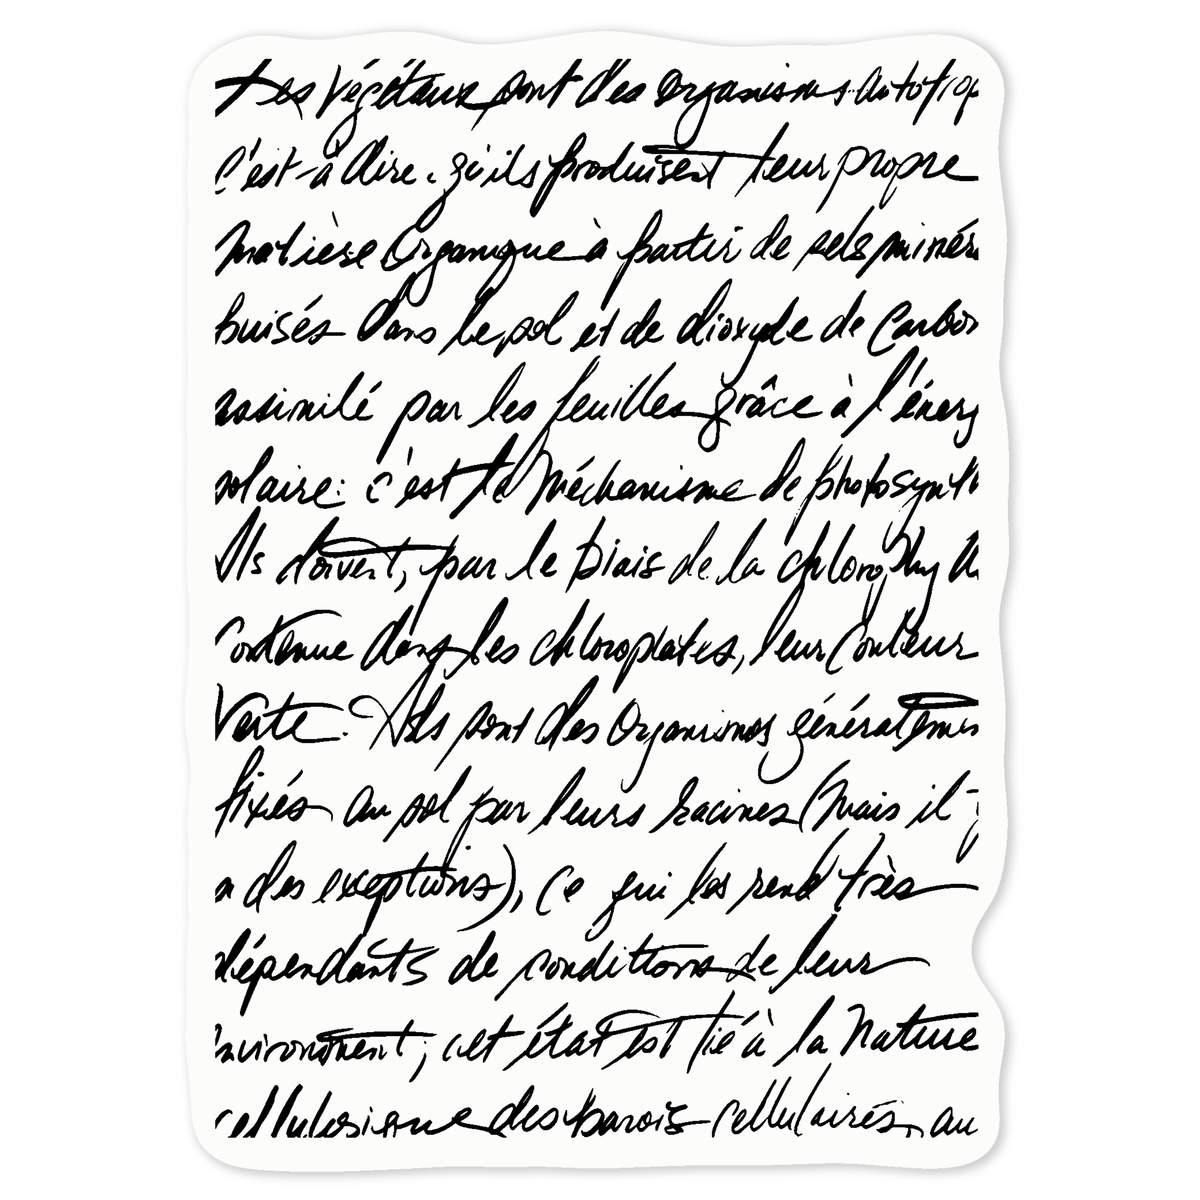 Les végétaux sont des organismes autotrop
c'est-à dire. qu'ils produisent leur propre
matière Organique à partir de sels minér
puisés dans le sol et de dioxyde de Carbon
assimilé par les feuilles grâce à l'énerg
solaire: c'est le méchanisme de photosynth
Ils doivent, par le biais de la chlorophyll
Contenue dans les chloroplates, leur Couleur
Verte. Ils sont des Organismes généralemen
fixés au sol par leurs racines (mais il-y
a des exceptions), Ce qui les rend très
dépendants de conditions de leur
environnement; cet état est lié à la Nature
cellulosique des parois cellulaires, au